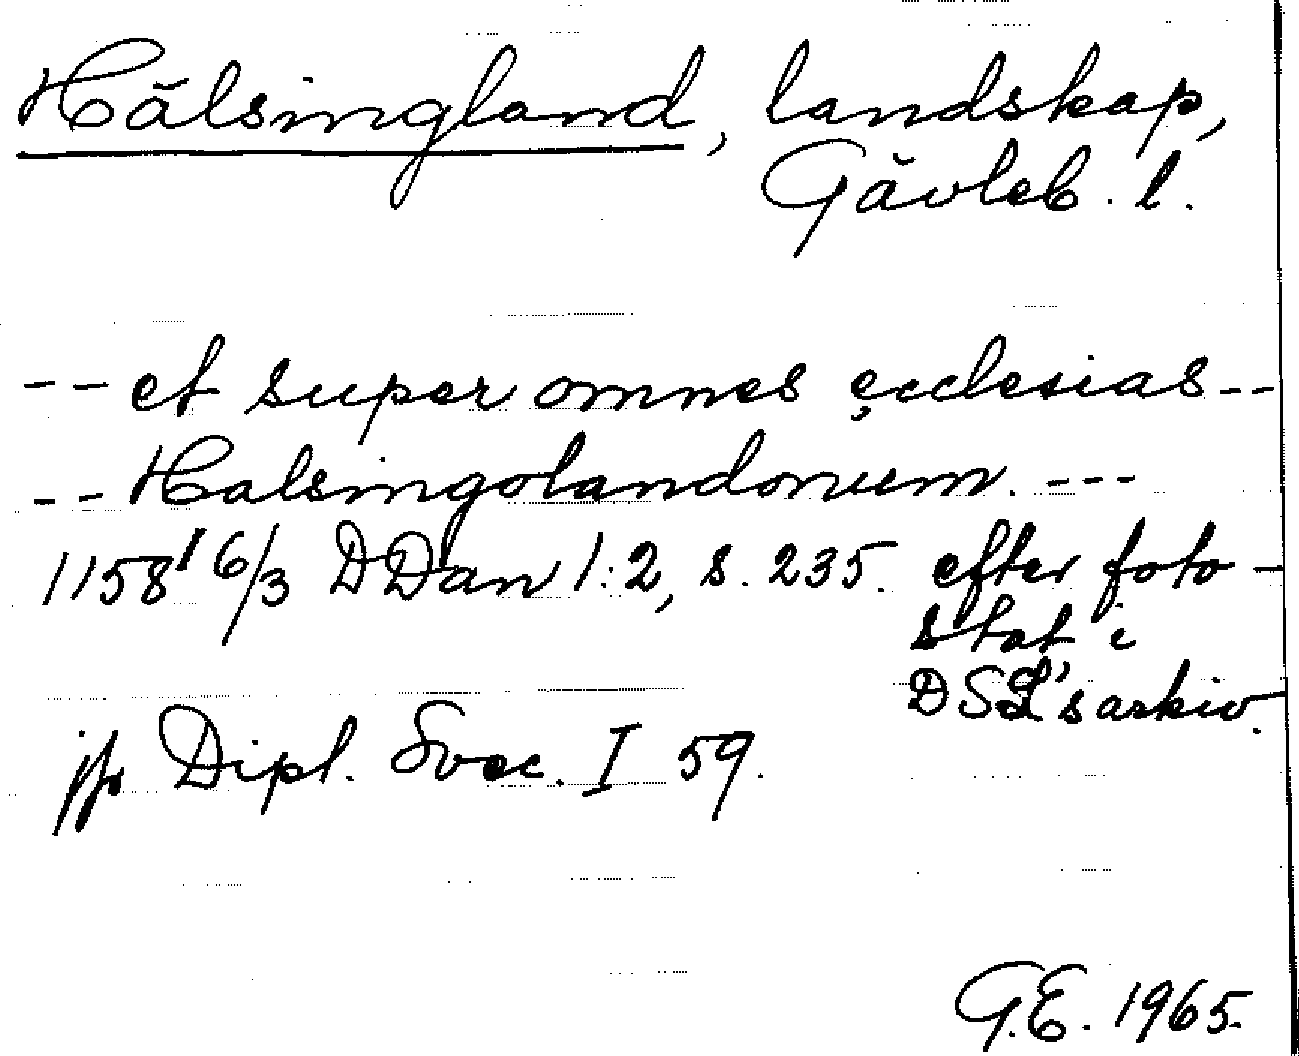 Hälsingland, landskap,
Gävleb. l.
-- et super omnes ęcclesias --
-- Halsingolandorum. ---
1158 16/3 DDan 1:2, s. 235. efter foto-
stat i
DSL's arkiv.
jfr Dipl. Svec. I 59.
G.E. 1965.